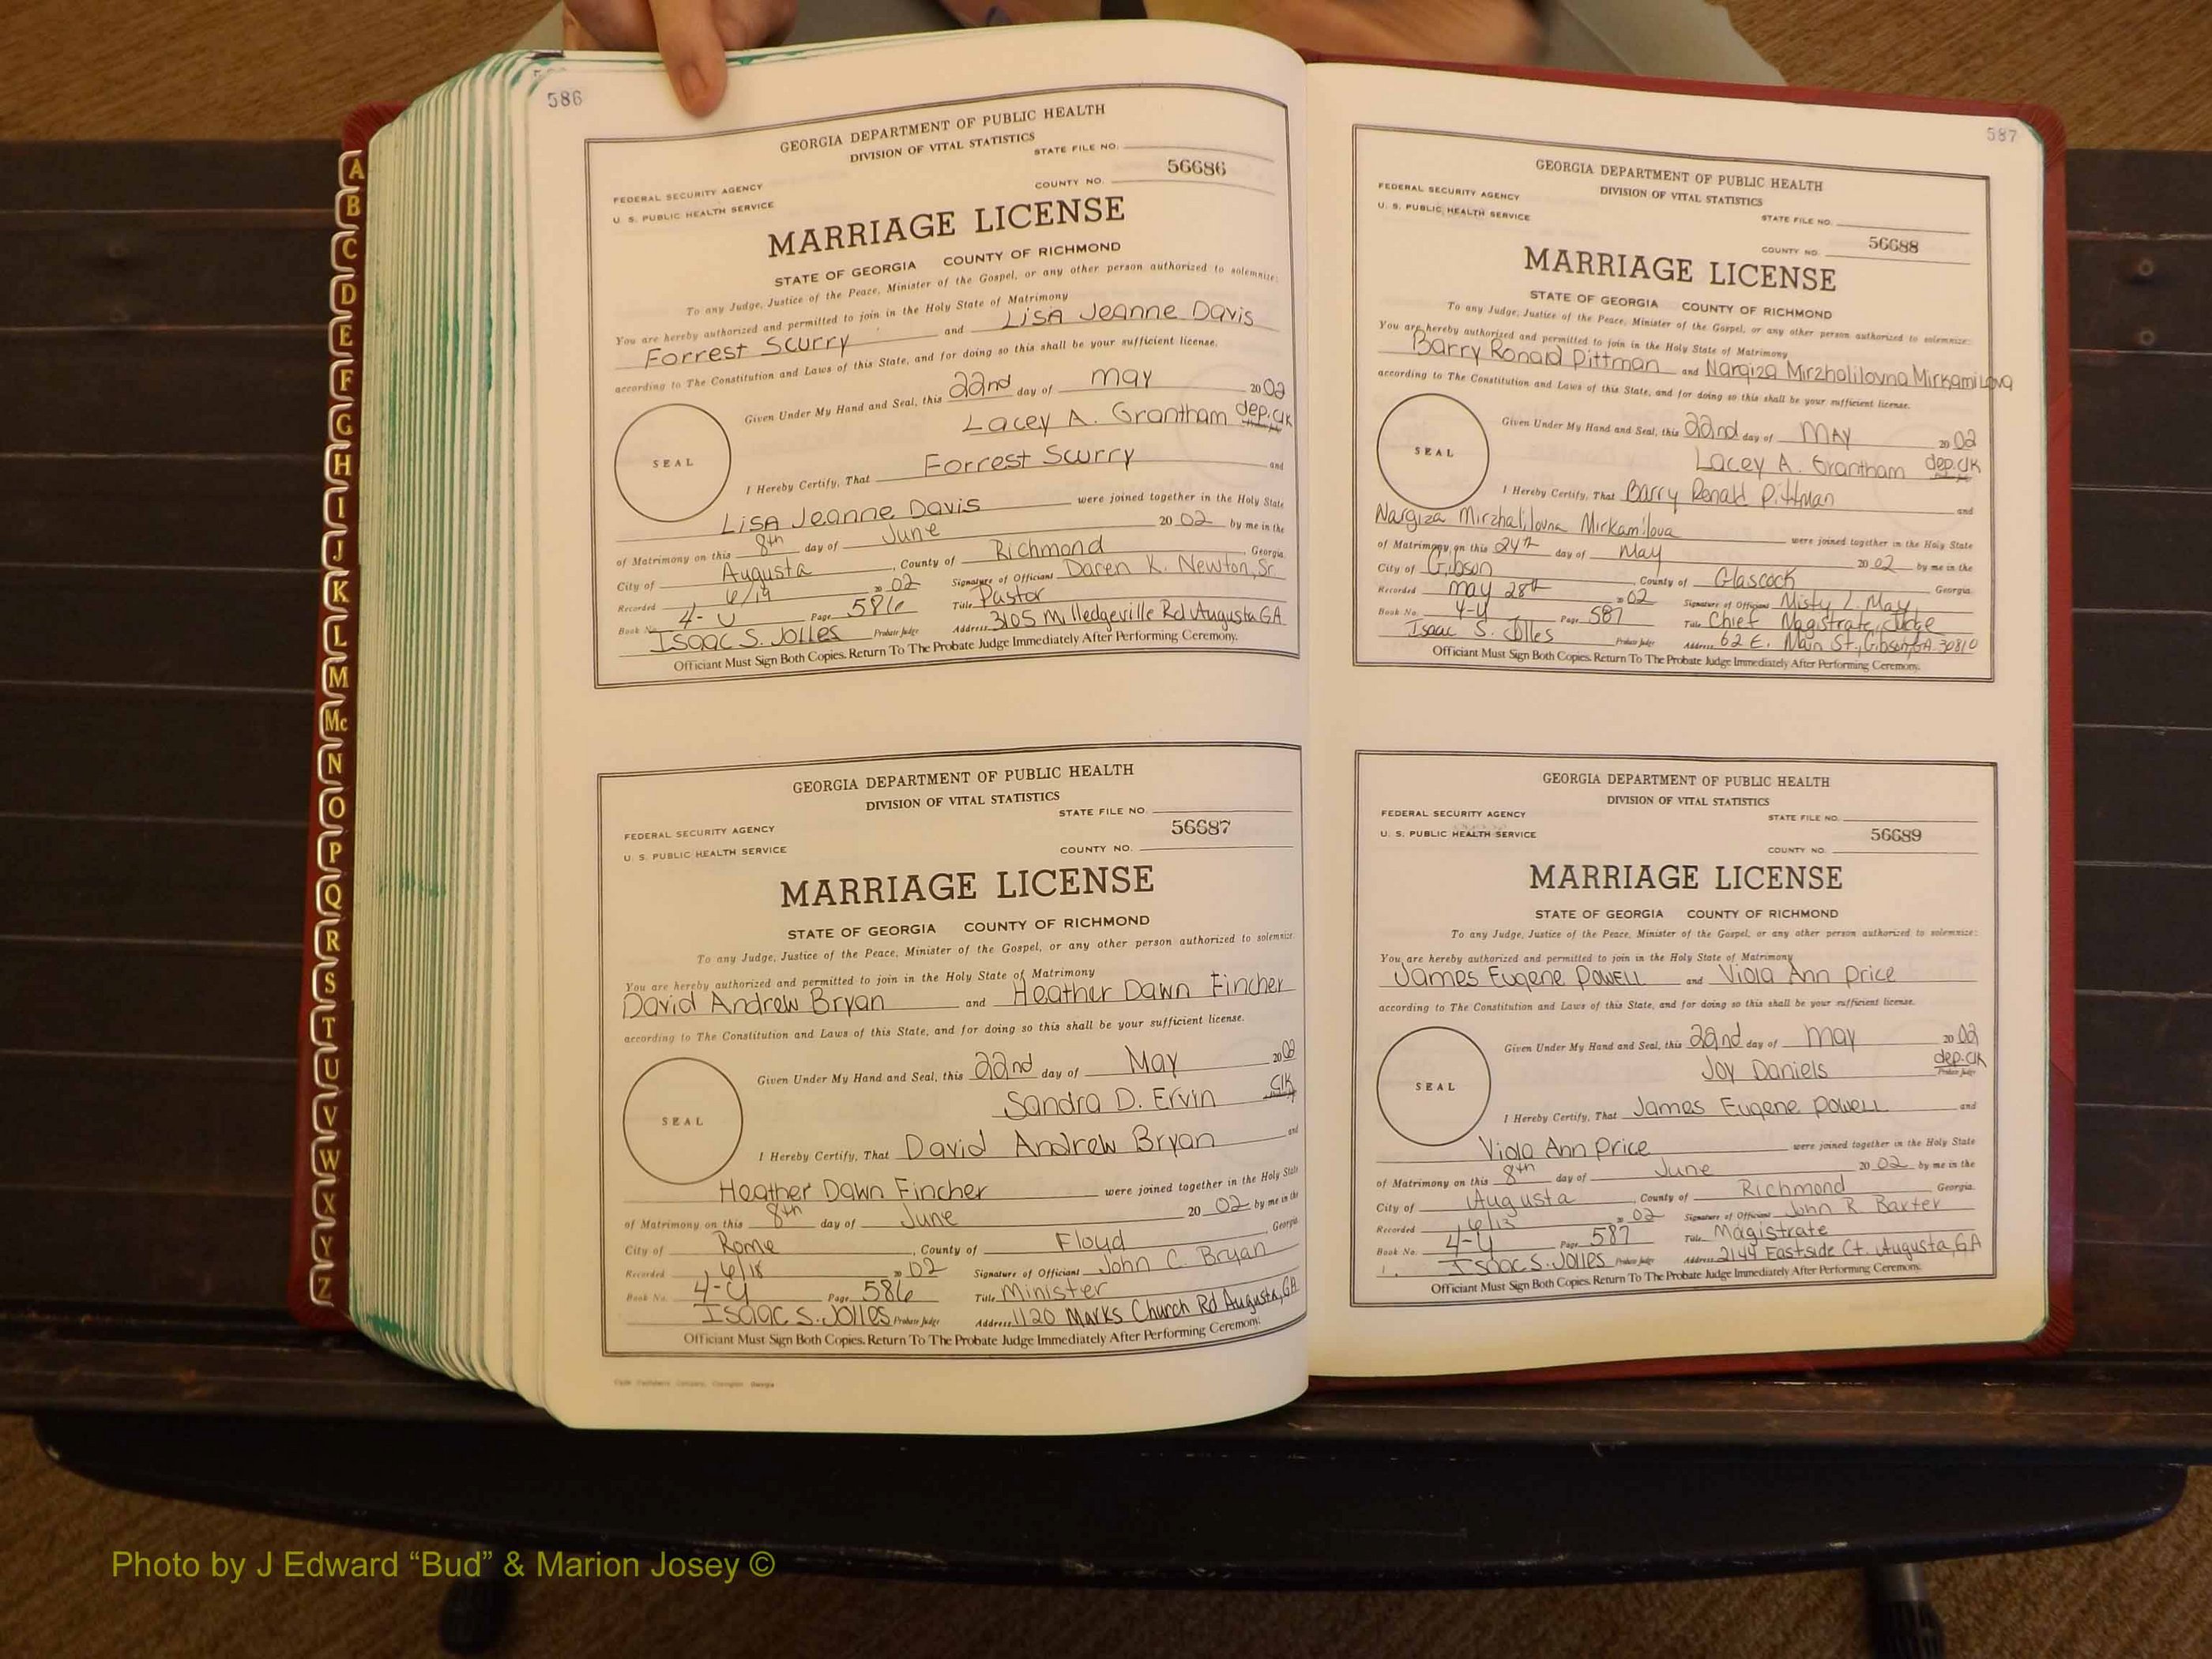 A
B
C
D
E
F
G
H
I
J
K
L
M
Mc
N
O
P
Q
R
S
T
U
V
W
X
Y
Z
586
GEORGIA DEPARTMENT OF PUBLIC HEALTH
DIVISION OF VITAL STATISTICS
STATE FILE NO.
56686
FEDERAL SECURITY AGENCY
COUNTY NO.
U. S. PUBLIC HEALTH SERVICE
MARRIAGE LICENSE
STATE OF GEORGIA COUNTY OF RICHMOND
To any Judge, Justice of the Peace, Minister of the Gospel, or any other person authorized to solemnize:
You are hereby authorized and permitted to join in the Holy State of Matrimony
Forrest Scurry and Lisa Jeanne Davis
according to The Constitution and Laws of this State, and for doing so this shall be your sufficient license.
Given Under My Hand and Seal, this 22nd day of May 2002
Lacey A. Grantham dep.clk
SEAL
I Hereby Certify, That Forrest Scurry and
Lisa Jeanne Davis were joined together in the Holy State
of Matrimony on this 8th day of June 2002 by me in the
City of Augusta, County of Richmond, Georgia.
Recorded 6/19 2002 Signature of Officiant Daren K. Newton, Sr.
Book No. 4-U Page 586 Title Pastor
Isaac S. Jolles Probate Judge Address 3105 Milledgeville Rd Augusta GA
Officiant Must Sign Both Copies. Return To The Probate Judge Immediately After Performing Ceremony.
GEORGIA DEPARTMENT OF PUBLIC HEALTH
DIVISION OF VITAL STATISTICS
STATE FILE NO.
56687
FEDERAL SECURITY AGENCY
COUNTY NO.
U. S. PUBLIC HEALTH SERVICE
MARRIAGE LICENSE
STATE OF GEORGIA COUNTY OF RICHMOND
To any Judge, Justice of the Peace, Minister of the Gospel, or any other person authorized to solemnize:
You are hereby authorized and permitted to join in the Holy State of Matrimony
David Andrew Bryan and Heather Dawn Fincher
according to The Constitution and Laws of this State, and for doing so this shall be your sufficient license.
Given Under My Hand and Seal, this 22nd day of May 2002
Sandra D. Ervin Clk
SEAL
I Hereby Certify, That David Andrew Bryan and
Heather Dawn Fincher were joined together in the Holy State
of Matrimony on this 8th day of June 2002 by me in the
City of Rome, County of Floyd, Georgia.
Recorded 6/18 2002 Signature of Officiant John C. Bryan
Book No. 4-U Page 586 Title Minister
Isaac S. Jolles Probate Judge Address 1120 Marks Church Rd Augusta, GA
Officiant Must Sign Both Copies. Return To The Probate Judge Immediately After Performing Ceremony.
587
GEORGIA DEPARTMENT OF PUBLIC HEALTH
FEDERAL SECURITY AGENCY
DIVISION OF VITAL STATISTICS
U. S. PUBLIC HEALTH SERVICE
STATE FILE NO.
56688
COUNTY NO.
MARRIAGE LICENSE
STATE OF GEORGIA COUNTY OF RICHMOND
To any Judge, Justice of the Peace, Minister of the Gospel, or any other person authorized to solemnize:
You are hereby authorized and permitted to join in the Holy State of Matrimony
Barry Ronald Pittman and Nargiza Mirzhalilovna Mirkamilova
according to The Constitution and Laws of this State, and for doing so this shall be your sufficient license.
Given Under My Hand and Seal, this 22nd day of May 2002
Lacey A. Grantham dep.clk
SEAL
I Hereby Certify, That Barry Ronald Pittman and
Nargiza Mirzhalilovna Mirkamilova were joined together in the Holy State
of Matrimony on this 24th day of May 2002 by me in the
City of Gibson, County of Glascock Georgia.
Recorded May 28th 2002 Signature of Officiant Misty L. May
Book No. 4-U Page 587 Title Chief Magistrate Judge
Isaac S. Jolles Probate Judge Address 62 E. Main St., Gibson, GA 30810
Officiant Must Sign Both Copies. Return To The Probate Judge Immediately After Performing Ceremony.
GEORGIA DEPARTMENT OF PUBLIC HEALTH
DIVISION OF VITAL STATISTICS
FEDERAL SECURITY AGENCY
STATE FILE NO.
U. S. PUBLIC HEALTH SERVICE
56689
COUNTY NO.
MARRIAGE LICENSE
STATE OF GEORGIA COUNTY OF RICHMOND
To any Judge, Justice of the Peace, Minister of the Gospel, or any other person authorized to solemnize:
You are hereby authorized and permitted to join in the Holy State of Matrimony
James Eugene Powell and Viola Ann Price
according to The Constitution and Laws of this State, and for doing so this shall be your sufficient license.
Given Under My Hand and Seal, this 22nd day of May 2002
Joy Daniels dep.clk
Probate Judge
SEAL
I Hereby Certify, That James Eugene Powell and
Viola Ann Price were joined together in the Holy State
of Matrimony on this 8th day of June 2002 by me in the
City of Augusta, County of Richmond Georgia.
Recorded 6/13 2002 Signature of Officiant John R. Baxter
Book No. 4-U Page 587 Title Magistrate
Isaac S. Jolles Probate Judge Address 2144 Eastside Ct. Augusta, GA
Officiant Must Sign Both Copies. Return To The Probate Judge Immediately After Performing Ceremony.
Photo by J Edward “Bud” & Marion Josey ©